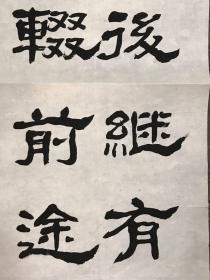 後継有
輟前途